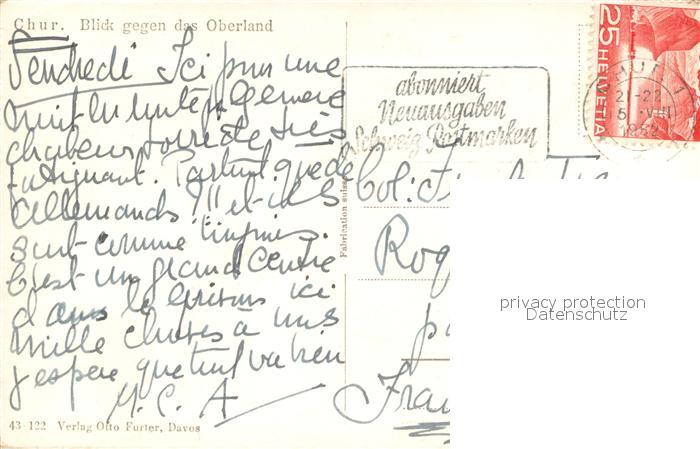 Chur. Blick gegen das Oberland
Vendredi Ici pour une
nuit
chaleur très
fatiguant. Partout que de
Allemands !!! et ils
sont comme
C'est un grand centre
dans le grisons ici
mille choses à vous
j'espere que tout va bien
M. C. A
43-122 Verlag Otto Furter, Davos
Fabrication suisse
abonniert
Neuausgaben
Schweiz. Postmarken
25
HELVETIA
CHUR 1
Col:
Rog
Fran
privacy protection
Datenschutz